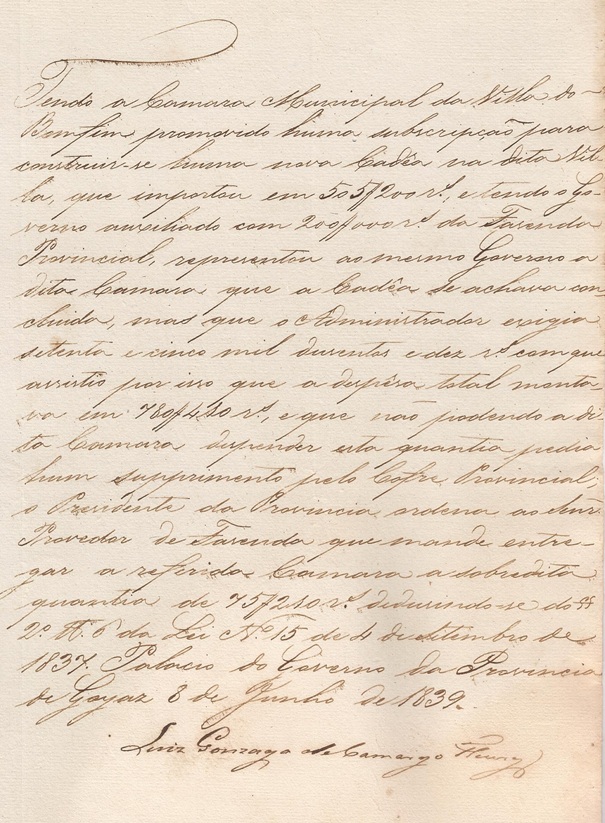 Tendo a Camara Municipal da Villa do
Bomfim promovido huma subscripção para
construir-se huma nova Cadêa na dita Vil-
la, que importou em 505$200 rs., e tendo o Go-
verno auxiliado com 200$000 rs. da Fazenda
Provincial, representou ao mesmo Governo a
dita Camara, que a Cadêa se achava con-
cluida, mas que o Administrador exigia
setenta e cinco mil dusentos e dez rs. com que
assistio por isso que a despêsa total monta-
va em 780$410 rs., e que não podendo a di-
ta Camara despender esta quantia pedia
hum supprimento pelo Cofre Provincial,
o Presidente da Provincia ordena ao Snr.
Provedor de Fazenda que mande entre-
gar a referida Camara a sobredita
quantia de 75$210 rs. dedusindo-se do §
2º. A. 6 da Lei Nº. 15 de 4 de Setembro de
1837. Palacio do Governo da Provincia
de Goyaz 8 de Junho de 1839.
Luiz Gonzaga de Camargo Fleury